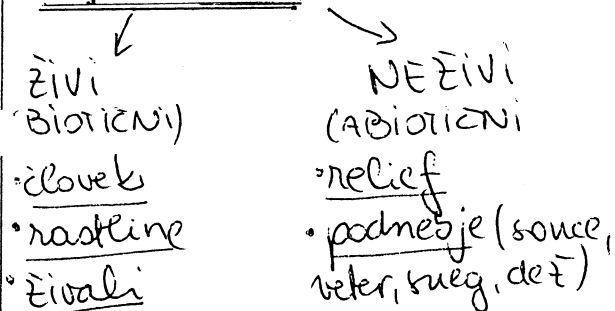 ŽIVI
(BIOTIČNI)
• človek
• rastline
• živali
NEŽIVI
(ABIOTIČNI
• relief
• podnebje (sonce,
veter, sneg, dež)